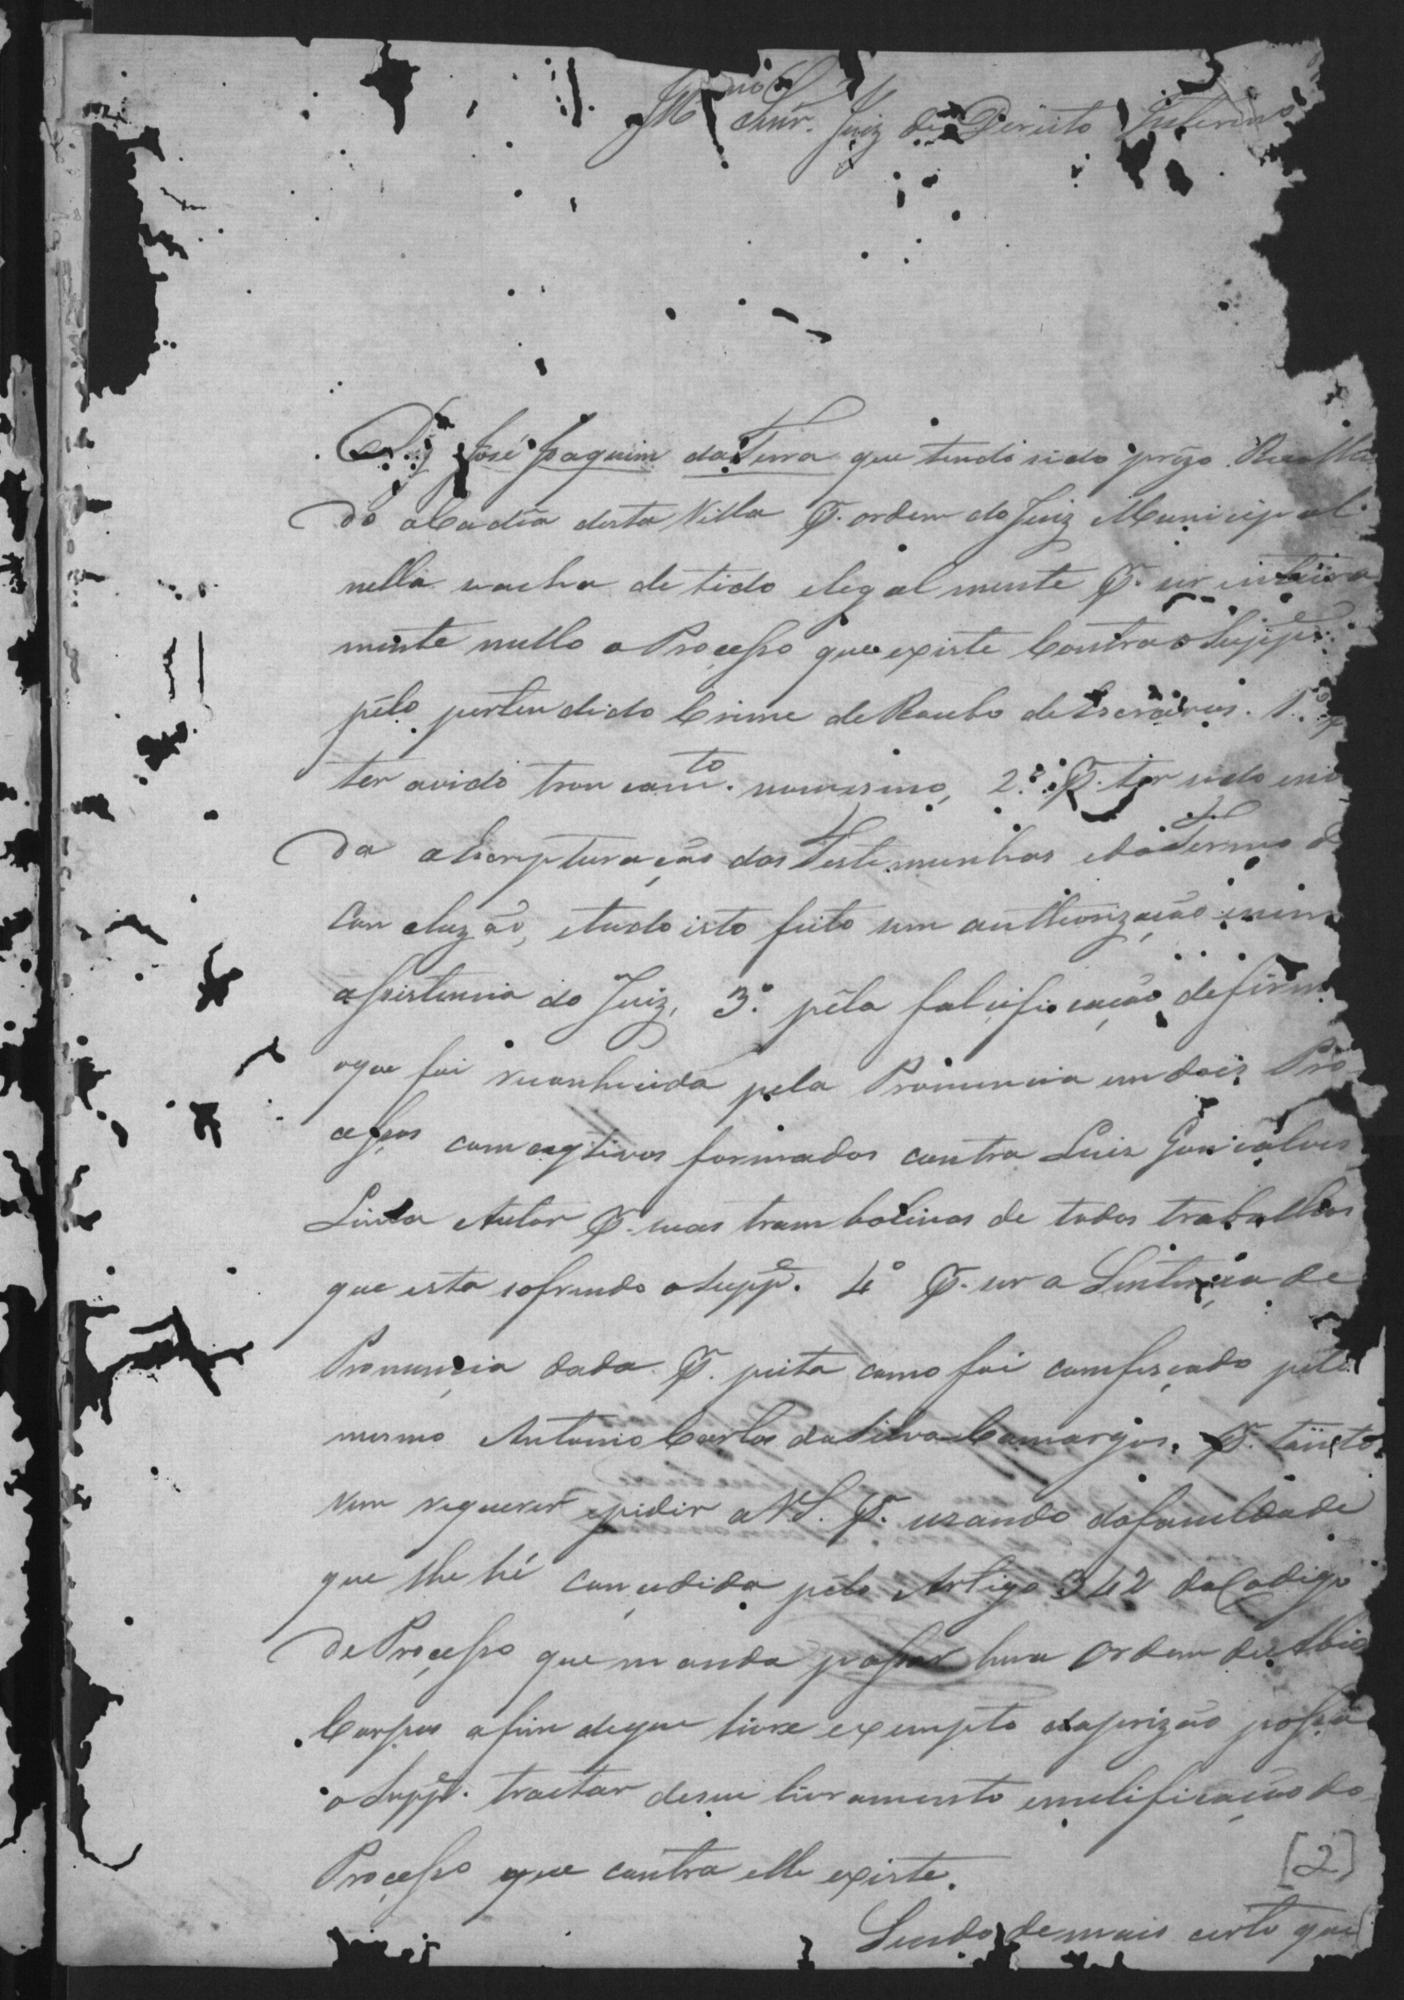 Snr. Juiz de Dereito Interino
Diz José Joaquim da Terra que tendo sido prezo Recolhi
do a Cadêa desta Villa P. ordem do Juiz Municipal
nella se acha detido elegalmente P. ser inteira
mente nullo o Processo que existe Contra o Suppe.
pêlo pertendido Crime de Roubo de Escravos. 1.º P.
ter avido troncamto. no mesmo, 2.º P. ter sido
da a Escripturação das Testemunhas e do Termo d
Concluzão, e tudo isto feito sem authorização e sem
assistencia do Juiz, 3.º pêla falcificação de firm
o que foi reconhecida pela Pronuncia em dois Pro
cessos formados contra Luis Gonsalves
Lima Autor P. suas trambolinas de todos trabalhos
que esta sofrendo o Suppe. 4.º P. ser a Sentença de
Pronuncia dada P. peita como foi comfeçado pelo
mesmo Antonio Carlos da Silva Camargos. P. tanto
vem requerer e pidir a V.S. P. uzando da faculdade
que lhe hé concedida pêlo Artigo 342 do Codigo
de Processo que manda passar hua Ordem de Abias
Corpus afim de que livre e exempto da prizão possa
o Suppe. tractar de seu livramento e nulificação do
Processo que contra elle existe.
[2]
Sendo demais certo que